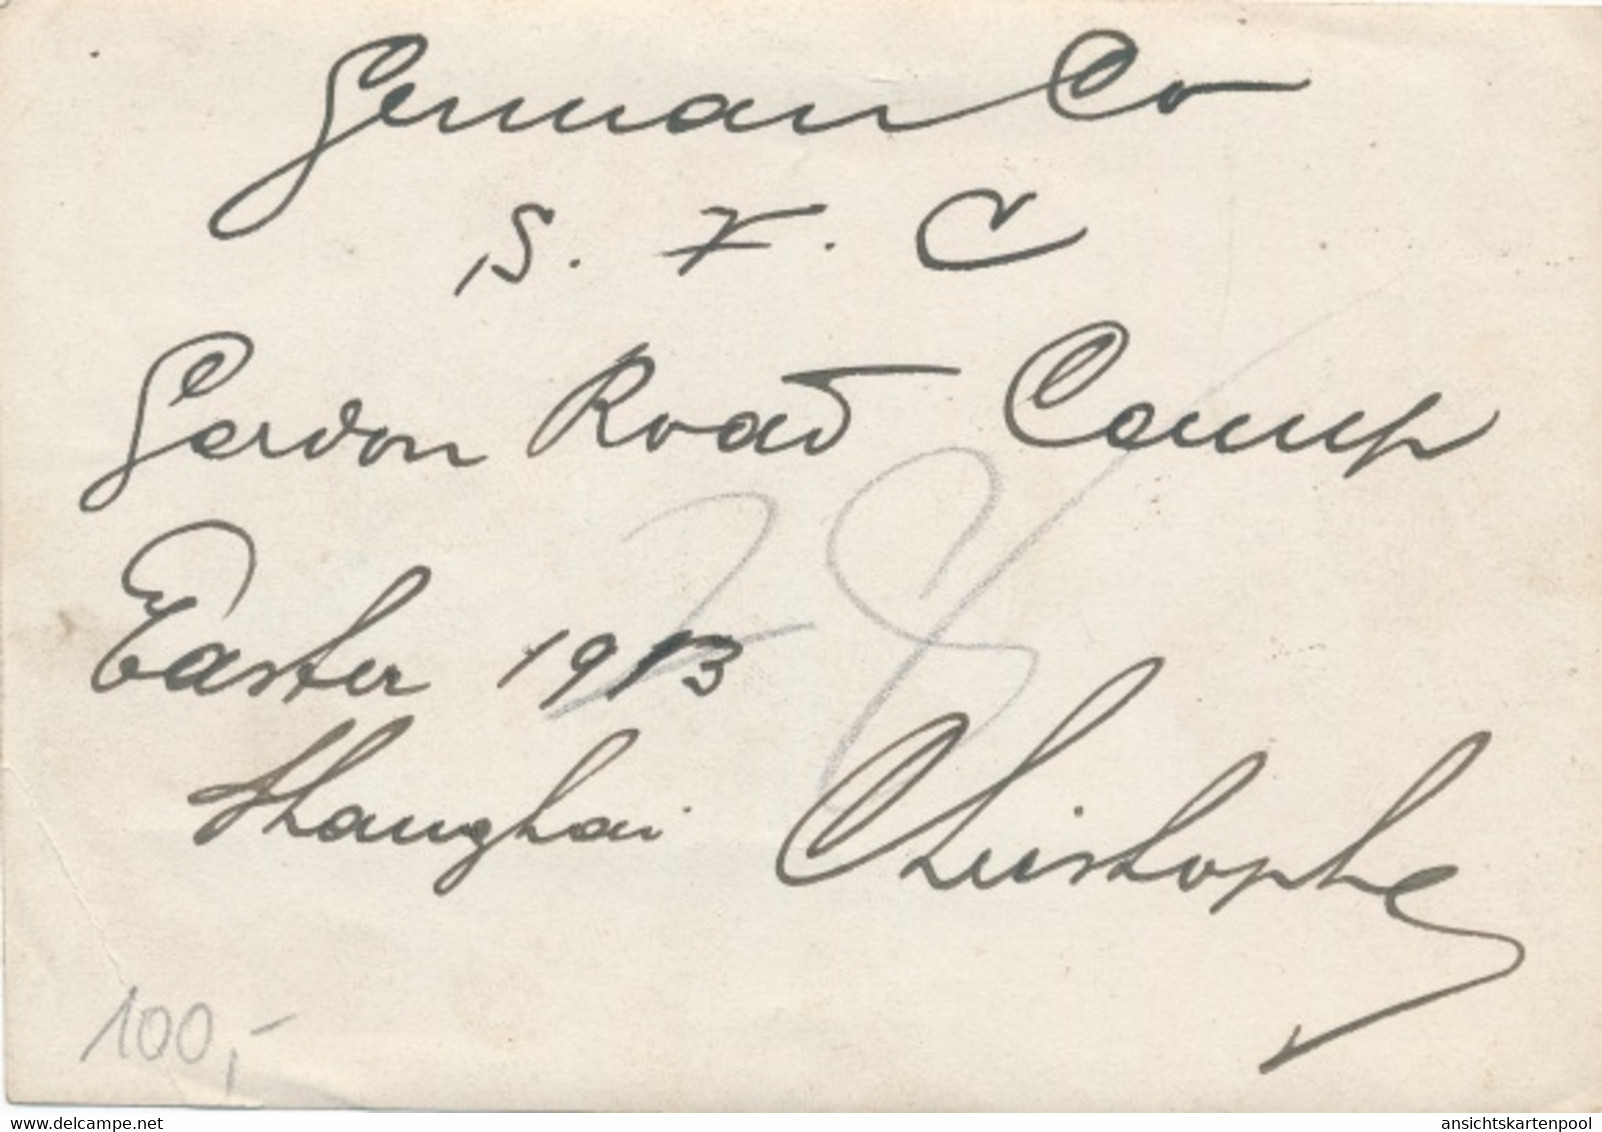 German Co
S. V. C
Gordon Road Camp
Easter 1913
Shanghai Christophe
100,-
www.delcampe.net
ansichtskartenpool